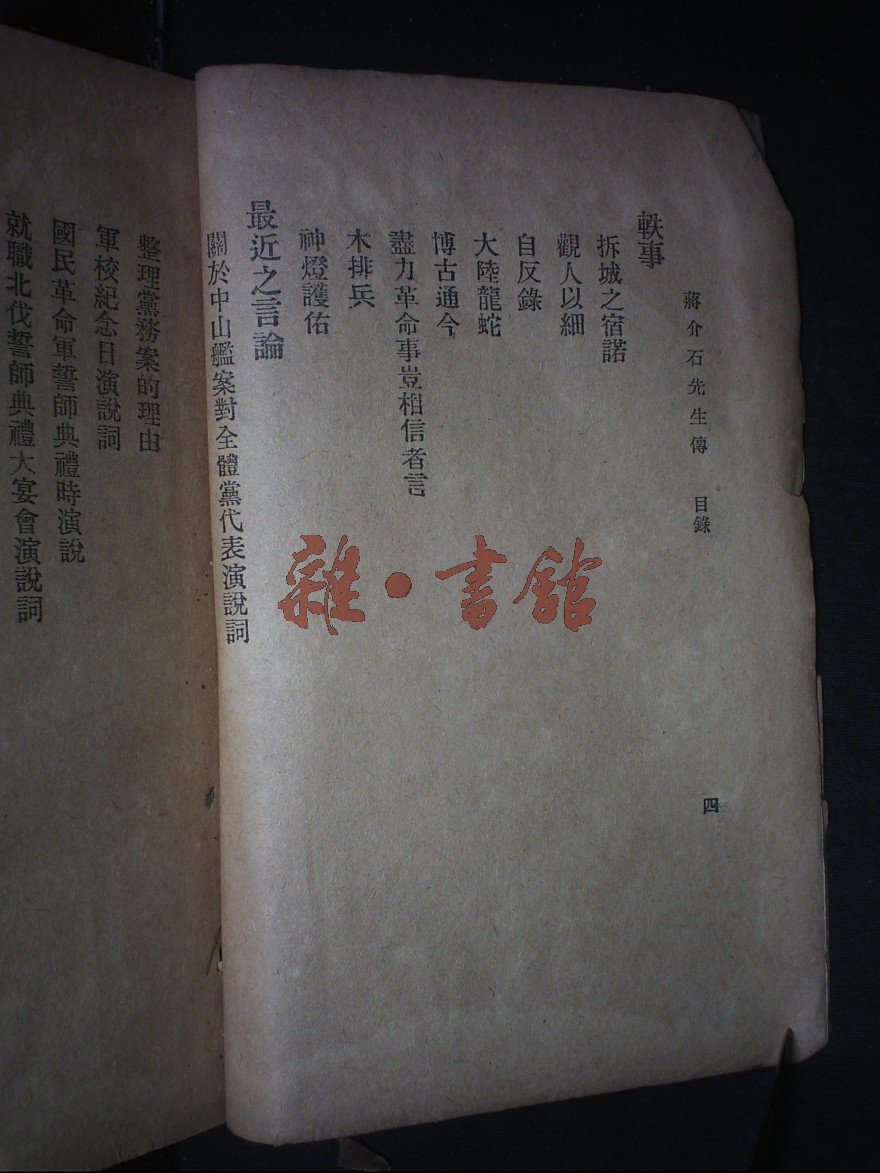 蔣介石先生傳 目錄 四
軼事
拆城之宿諾
觀人以細
自反錄
大陸龍蛇
博古通今
盡力革命事豈相信者言
木排兵
神燈護佑
最近之言論
關於中山艦案對全體黨代表演說詞
整理黨務案的理由
軍校紀念日演說詞
國民革命軍誓師典禮時演說
就職北伐誓師典禮大宴會演說詞
雜·書館